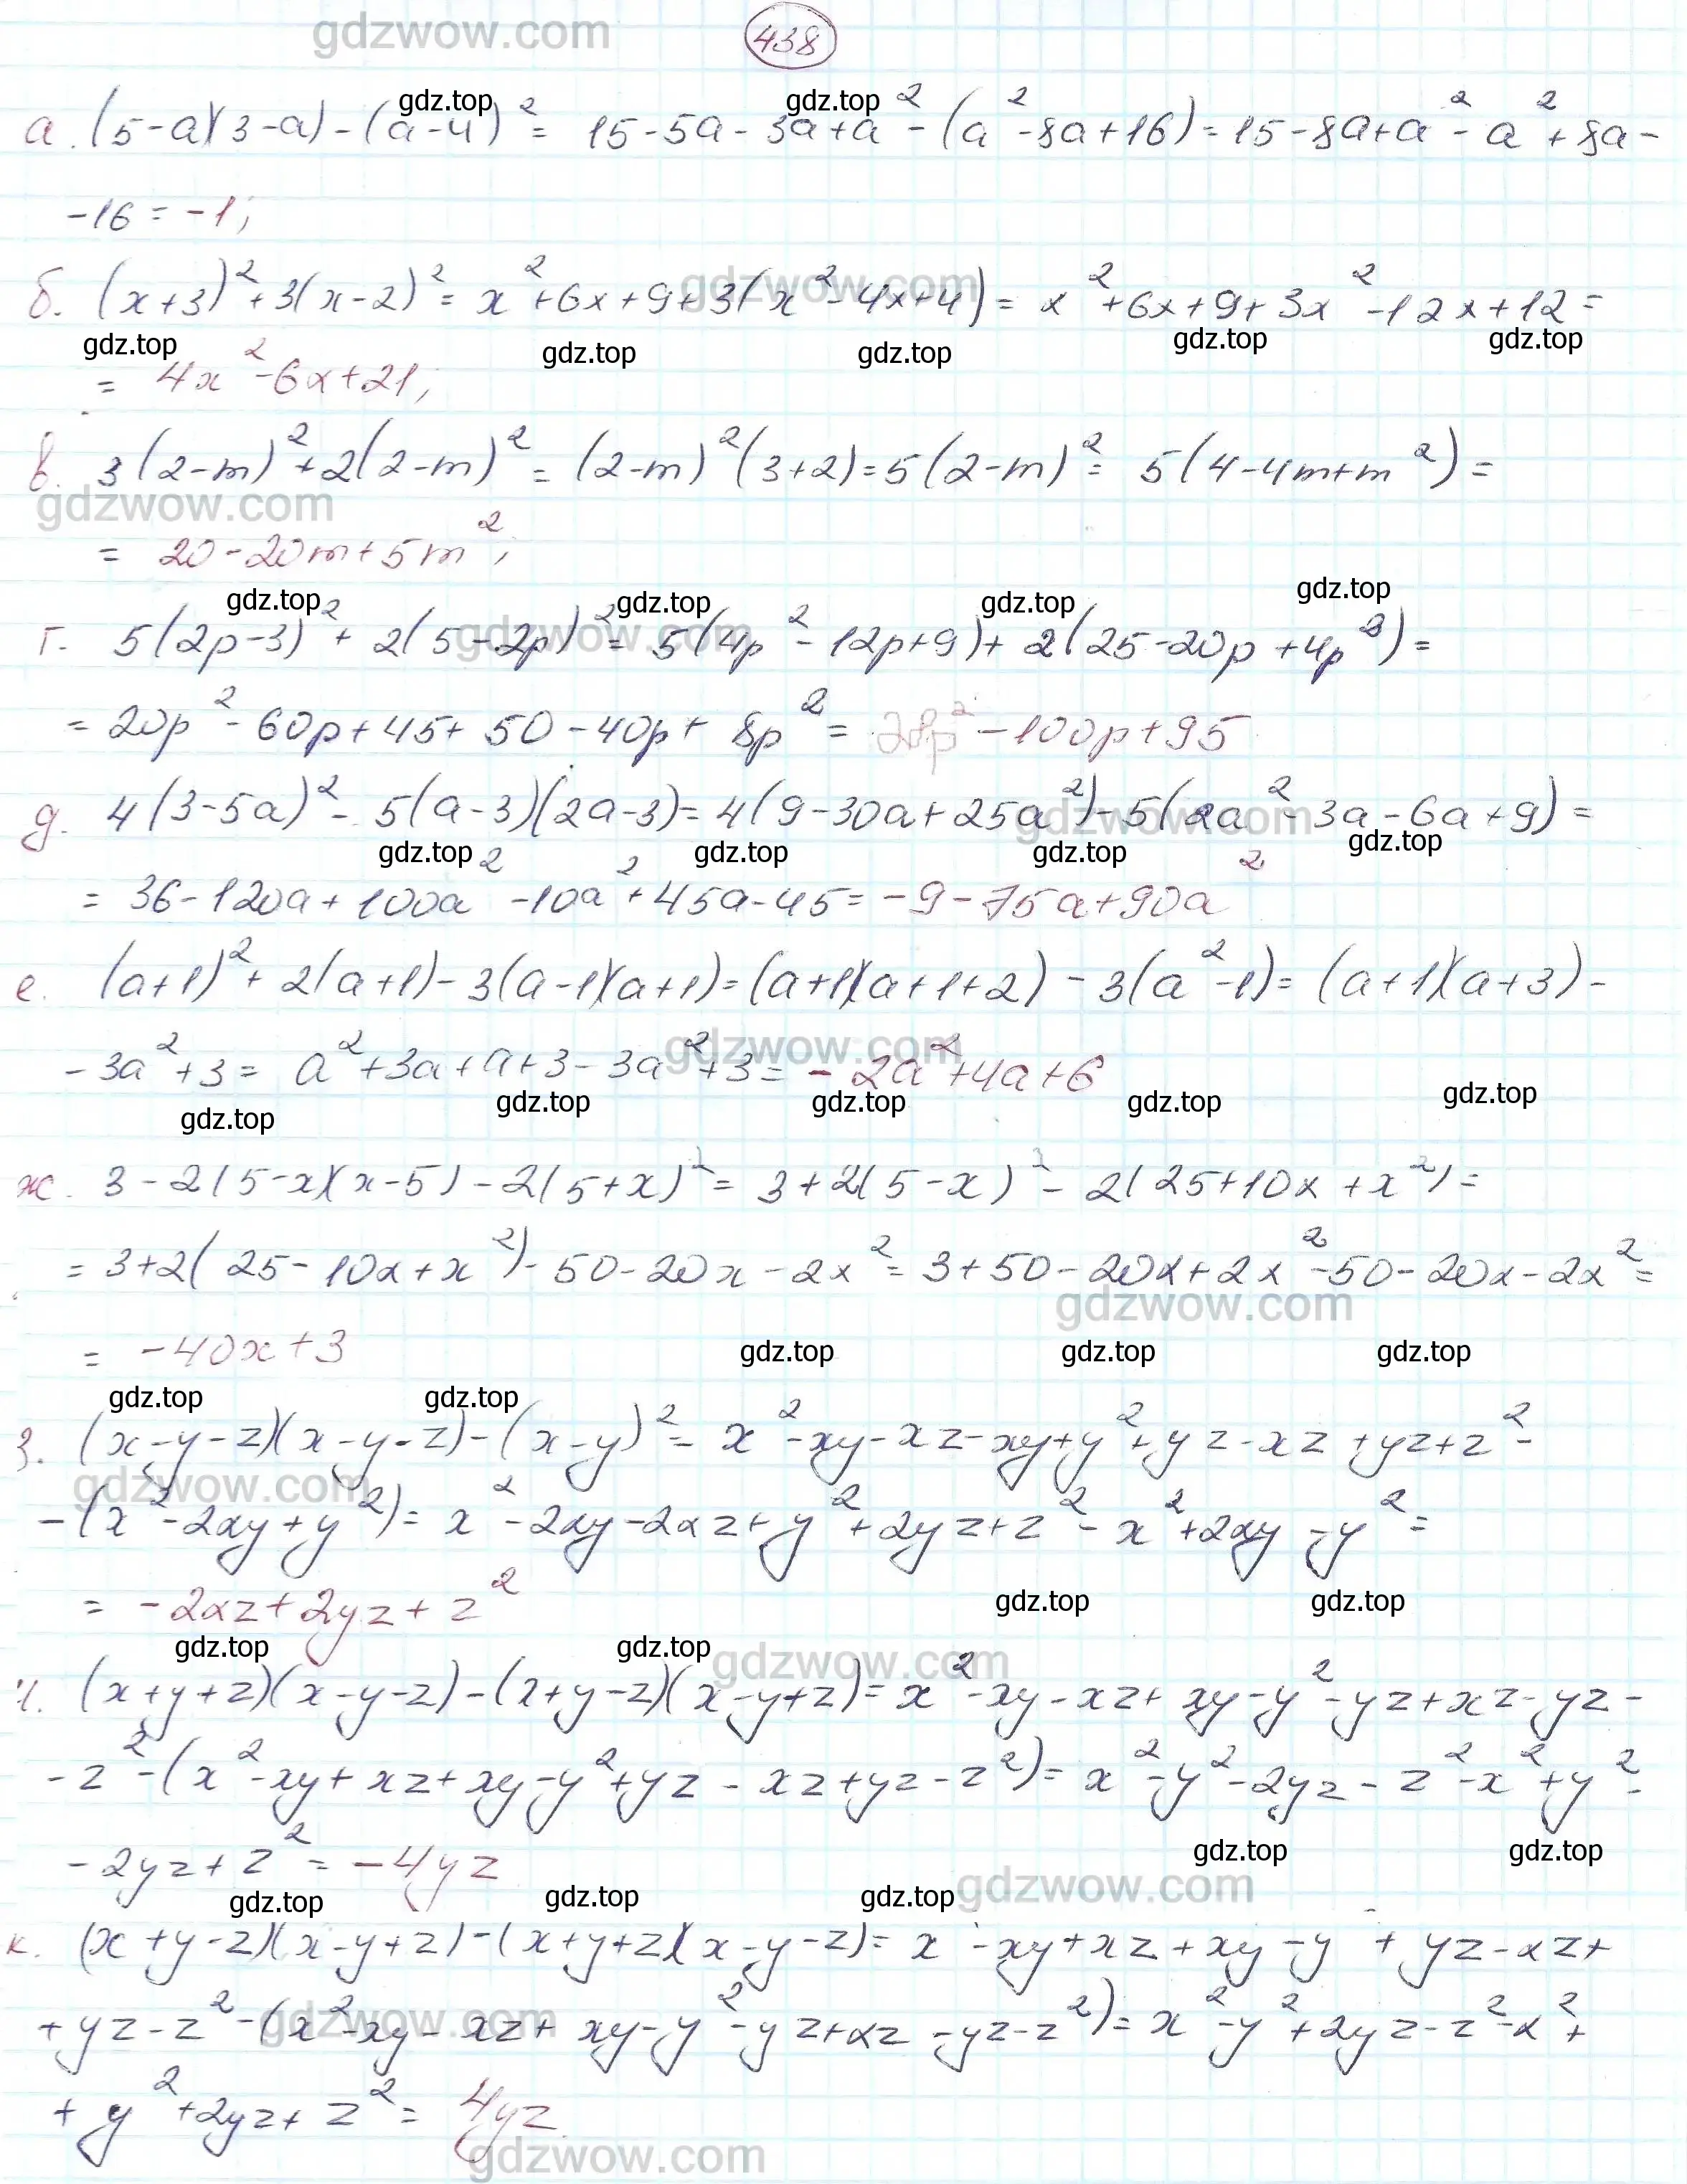 gdzwow.com
438
а. (5-a)(3-a)-(a-4)² = 15-5a-3a+a²-(a²-8a+16)=15-8a+a²-a²+8a-
gdz.top gdz.top
-16 = -1;
б. (x+3)²+3(x-2)²= x²+6x+9+3(x²-4x+4)= x²+6x+9+3x²-12x+12=
gdzwow.com
gdz.top gdz.top gdz.top gdz.top gdz.top
= 4x²-6x+21;
в. 3(2-m)²+2(2-m)² = (2-m)²(3+2)=5(2-m)²= 5(4-4m+m²)=
gdzwow.com
= 20-20m+5m²;
gdz.top gdz.top gdz.top gdz.top
г. 5(2p-3)²+ 2(5-2p)²= 5(4p²-12p+9)+ 2(25-20p+4p²)=
gdzwow.com
= 20p²-60p+45+50-40p+8p²= 28p²-100p+95
д. 4(3-5a)²- 5(a-3)(2a-3)=4(9-30a+25a²)-5(2a²-3a-6a+9)=
gdzwow.com
gdz.top gdz.top gdz.top gdz.top
= 36-120a+100a²-10a²+45a-45=-9-75a+90a²
е. (a+1)²+2(a+1)-3(a-1)(a+1)=(a+1)(a+1+2)-3(a²-1)=(a+1)(a+3)-
-3a²+3= a²+3a+a+3-3a²+3=-2a²+4a+6
gdzwow.com
gdz.top gdz.top gdz.top gdz.top gdz.top
ж. 3-2(5-x)(x-5)-2(5+x)²= 3+2(5-x)²-2(25+10x+x²)=
= 3+2(25-10x+x²)-50-20x-2x²=3+50-20x+2x²-50-20x-2x²=
gdzwow.com
= -40x+3
gdz.top gdz.top gdz.top
gdz.top gdz.top
з. (x-y-z)(x-y-z)-(x-y)²= x²-xy-xz-xy+y²+yz-xz+yz+z²-
gdzwow.com
-(x²-2xy+y²)= x²-2xy-2xz+y²+2yz+z²-x²+2xy-y²=
= -2xz+2yz+z²
gdz.top gdz.top
gdz.top gdz.top
gdzwow.com
и. (x+y+z)(x-y-z)-(x+y-z)(x-y+z)=x²-xy-xz+xy-y²-yz+xz-yz-
-z²-(x²-xy+xz+xy-y²+yz-xz+yz-z²)= x²-y²-2yz-z²-x²+y²-
-2yz+z²=-4yz
gdz.top gdz.top
gdzwow.com
gdz.top gdz.top gdz.top
к. (x+y-z)(x-y+z)-(x+y+z)(x-y-z)= x -xy+xz+xy-y +yz-xz+
+yz-z²-(x²-xy-xz+xy-y²-yz+xz-yz-z²)=x²-y²+2yz-z²-x²+
gdzwow.com
+y²+2yz+z²= 4yz
gdzwow.com